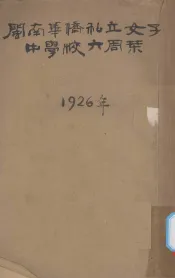 閩南華僑私立女子
中學校六周栞
1926年